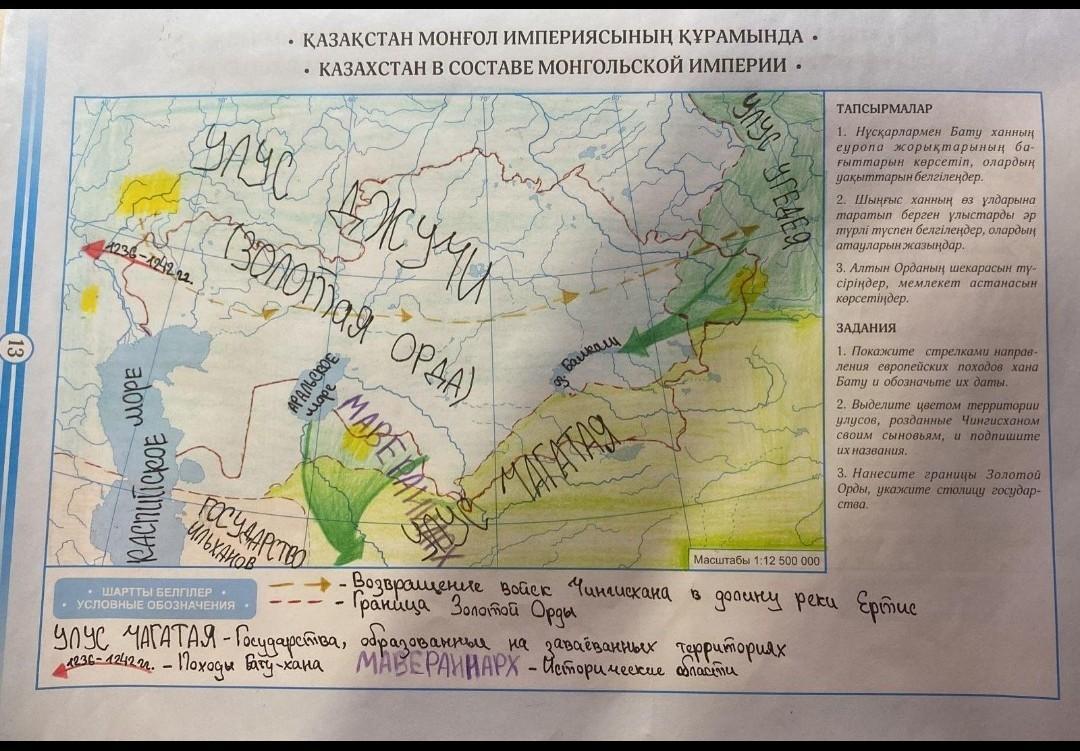 • ҚАЗАҚСТАН МОНҒОЛ ИМПЕРИЯСЫНЫҢ ҚҰРАМЫНДА •
• КАЗАХСТАН В СОСТАВЕ МОНГОЛЬСКОЙ ИМПЕРИИ •
УЛУС ДЖУЧИ
(ЗОЛОТАЯ ОРДА)
УЛУС УГЕДЕЯ
1236-1242 гг.
КАСПИЙСКОЕ МОРЕ
АРАЛЬСКОЕ
море
оз. Балкаш
МАВЕРАННАРХ
УЛУС ЧАГАТАЯ
ГОСУДАРСТВО
ИЛЬХАНОВ
Масштабы 1:12 500 000
13
ТАПСЫРМАЛАР
1. Нұсқарлармен Бату ханның
еуропа жорықтарының ба-
ғыттарын көрсетіп, олардың
уақыттарын белгілеңдер.
2. Шыңғыс ханның өз ұлдарына
таратып берген ұлыстарды әр
түрлі түспен белгілеңдер, олардың
атауларын жазыңдар.
3. Алтын Орданың шекарасын тү-
сіріңдер, мемлекет астанасын
көрсетіңдер.
ЗАДАНИЯ
1. Покажите стрелками направ-
ления европейских походов хана
Бату и обозначьте их даты.
2. Выделите цветом территории
улусов, розданные Чингисханом
своим сыновьям, и подпишите
их названия.
3. Нанесите границы Золотой
Орды, укажите столицу государ-
ства.
• ШАРТТЫ БЕЛГІЛЕР •
• УСЛОВНЫЕ ОБОЗНАЧЕНИЯ •
- Возвращение войск Чингисхана в долину реки Ертис
- Граница Золотой Орды
УЛУС ЧАГАТАЯ - Государства, образованные на завоёванных территориях
1236-1242 гг. - Походы Бату-хана МАВЕРАННАРХ - Исторические области